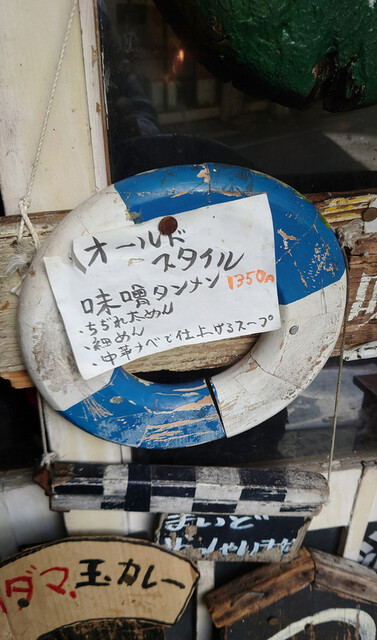 オールド
スタイル
味噌タンメン 1350円
・ちぢれ太めん
・細めん
・中華うべで仕上げるスープ
ダマ.玉カレー